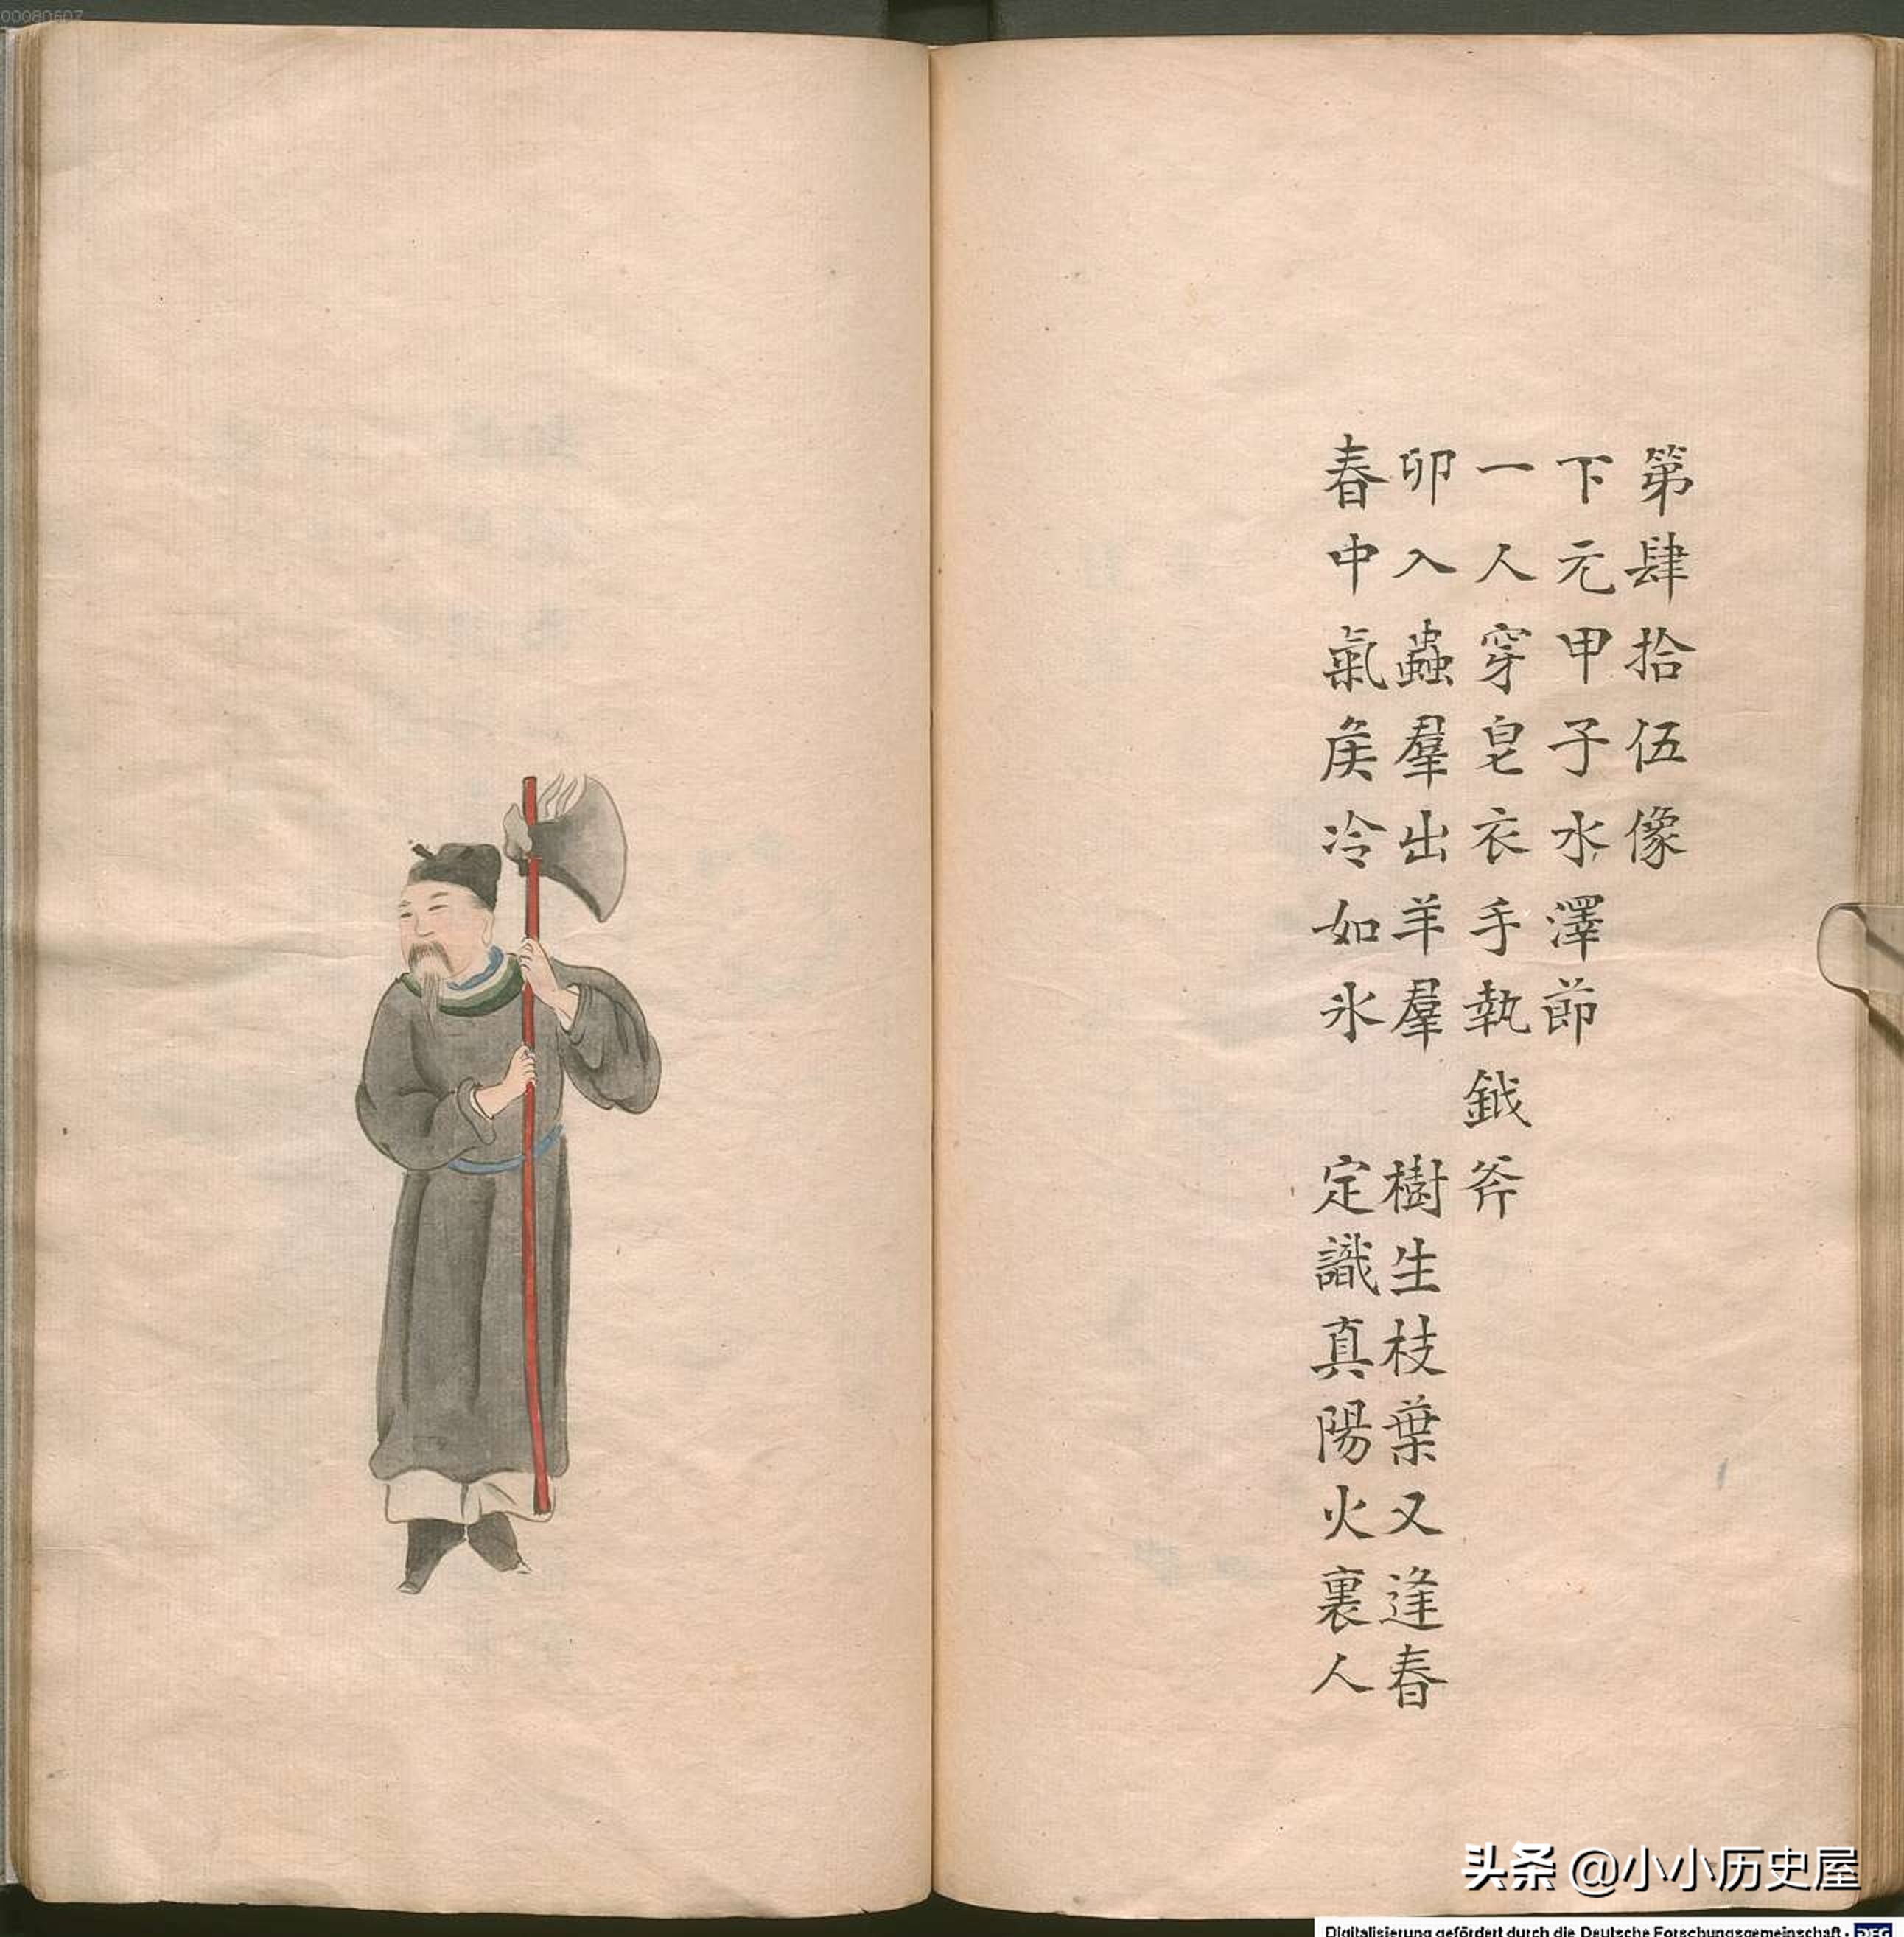 第肆拾伍像
下元甲子水澤節
一人穿皂衣手執鉞斧
卯入蟲羣出羊羣 樹生枝葉又逢春
春中氣矦冷如氷 定識真陽火裏人
00080607
头条 @小小历史屋
Digitalisierung gefördert durch die Deutsche Forschungsgemeinschaft - DFG